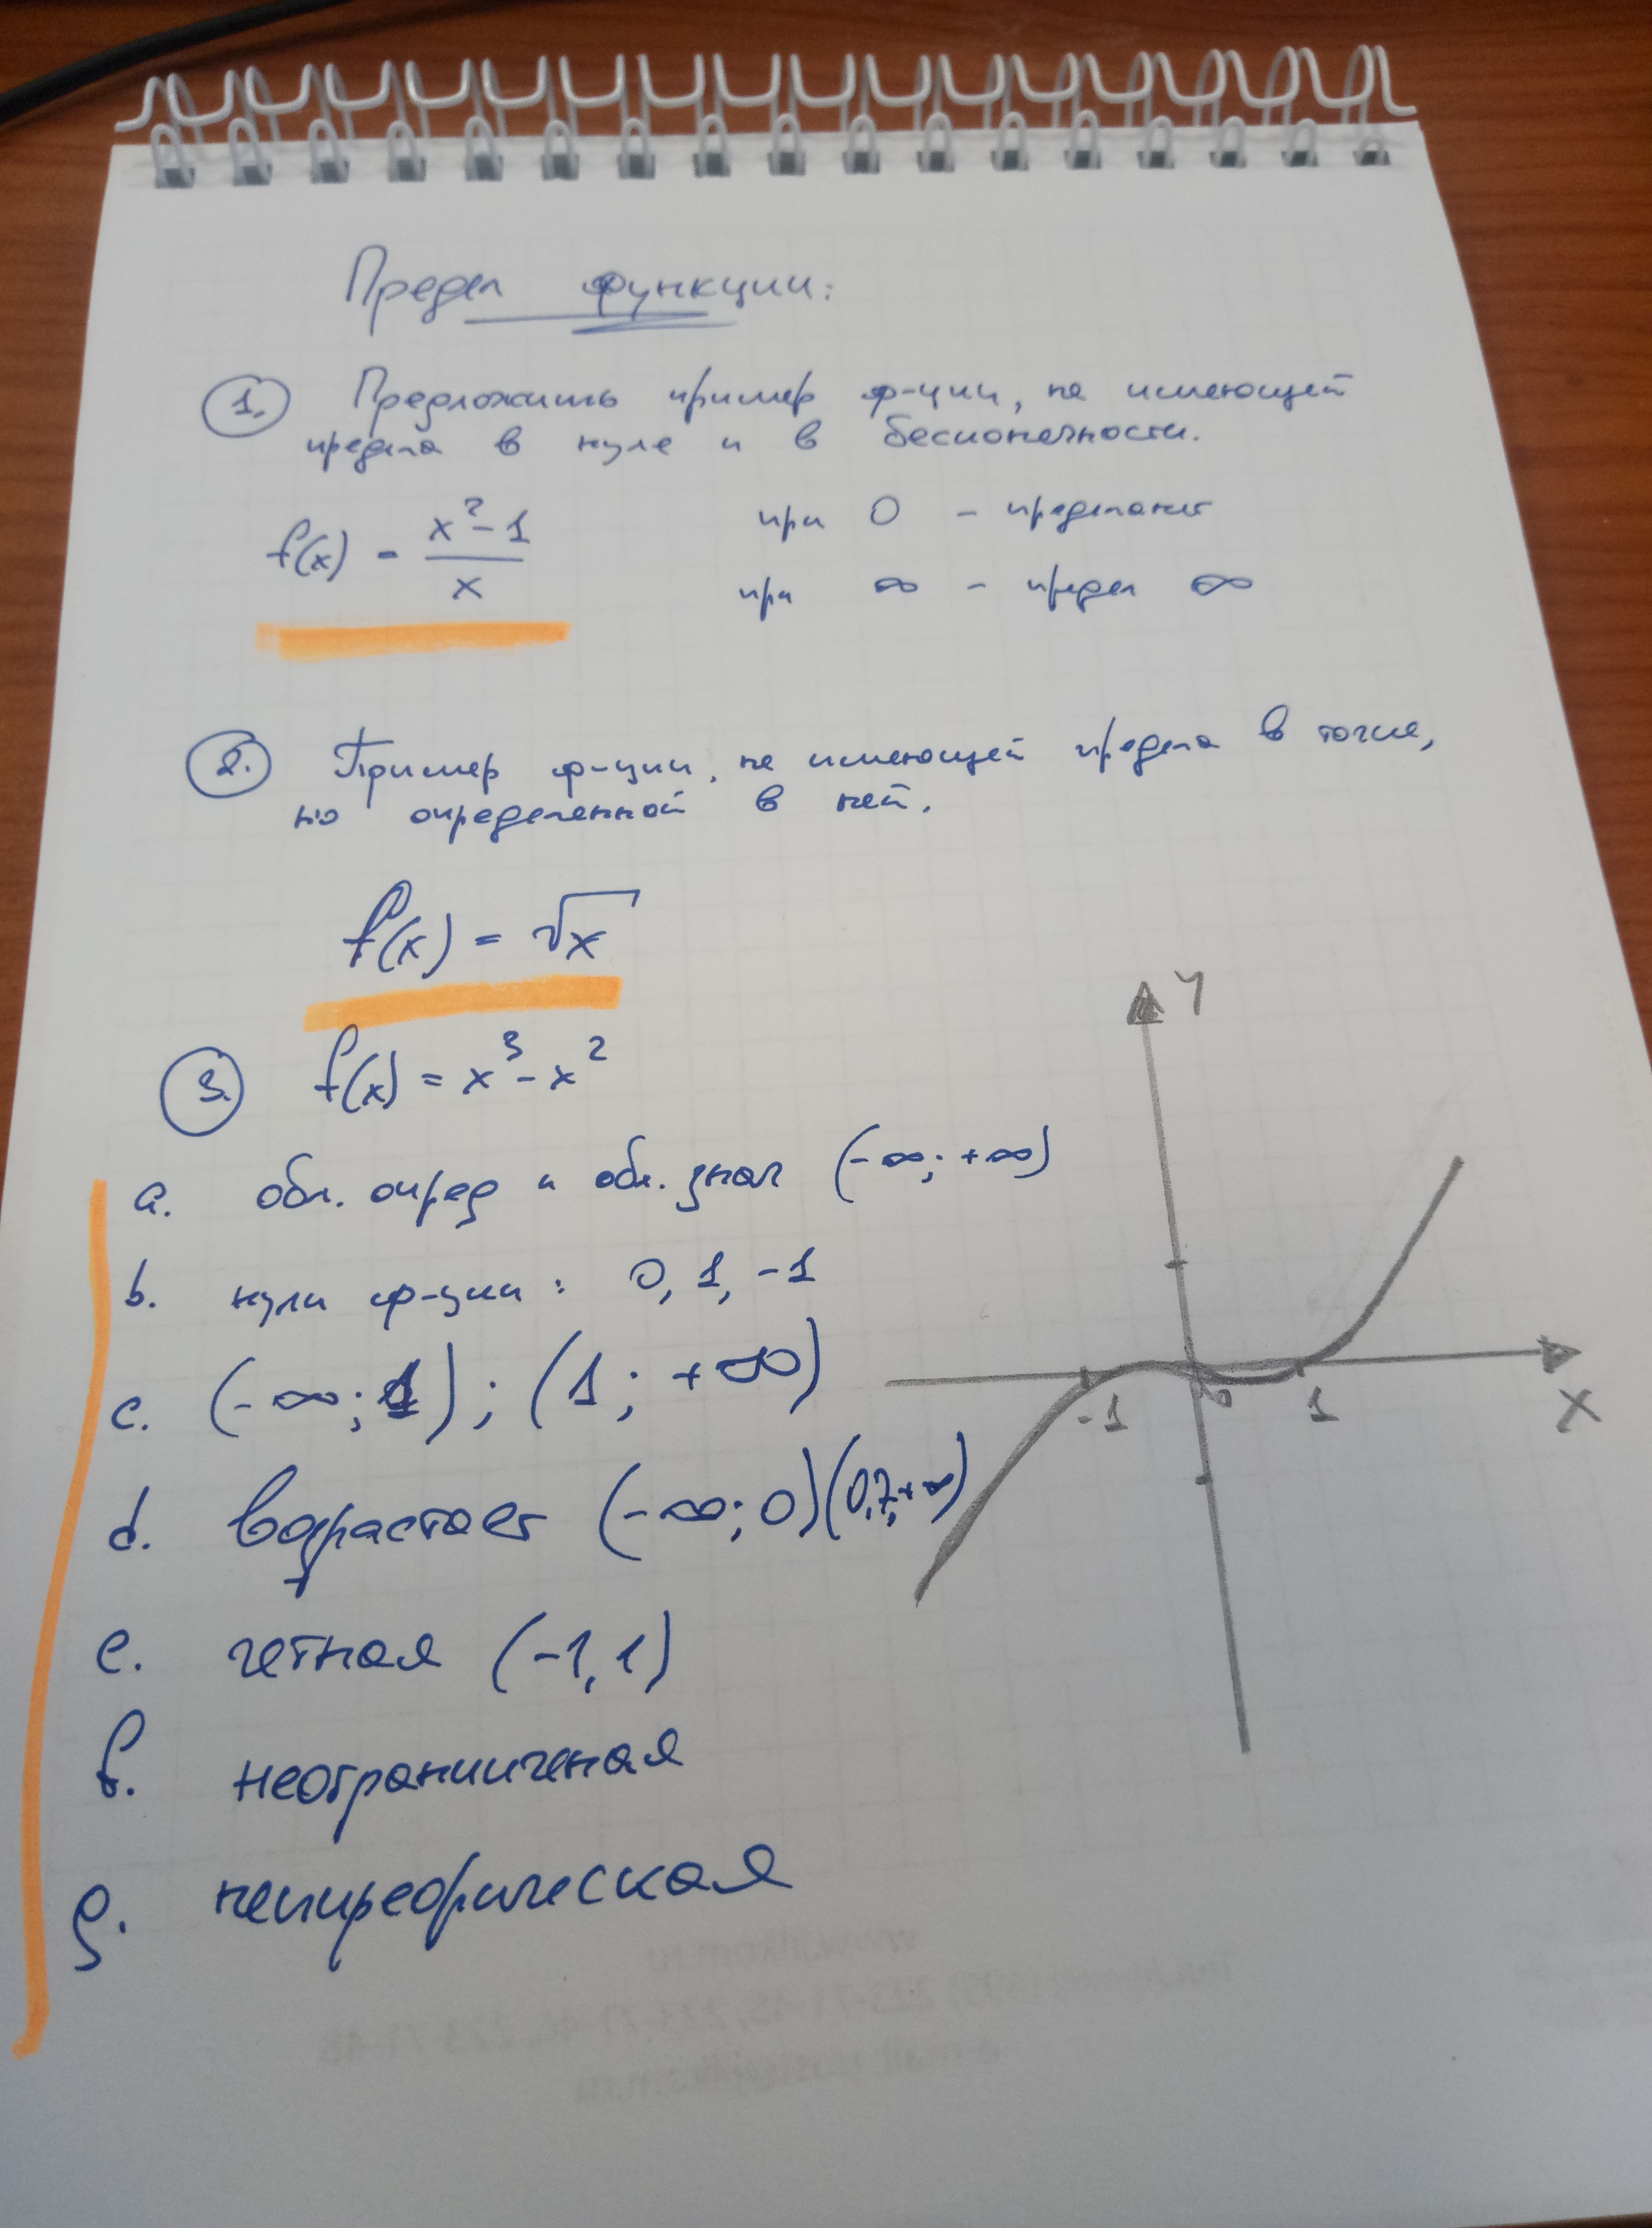 Предел функции:
1. Предложить пример ф-ции, не имеющей
предела в нуле и в бесконечности.
f(x) = x²-1 / x
при 0 - предела нет
при ∞ - предел ∞
2. Пример ф-ции, не имеющей предела в точке,
но определенной в ней.
f(x) = √x
3. f(x) = x³ - x²
a. обл. опред и обл. знач (-∞; +∞)
b. нули ф-ции: 0, 1, -1
c. (-∞; 1); (1; +∞)
d. возрастает (-∞; 0)(0,7; +∞)
e. четная (-1, 1)
f. неограниченая
g.
Y
-1 0 1
X